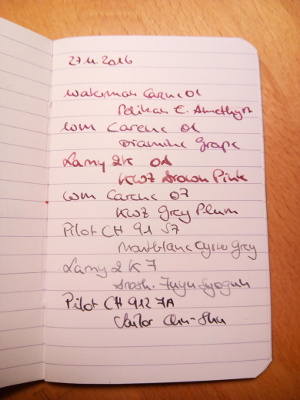 27.11.2016
Waterman Carene OL
Pelikan E. Amethyst
WM Carene OL
Diamine Grape
Lamy 2K OL
KWZ Brown Pink
WM Carene 07
KWZ Grey Plum
Pilot CH 91 S7
Montblanc Grey
Lamy 2K 7
Irosh. Fuyu Syogun
Pilot CH 912 7A
Sailor Chu-Shu